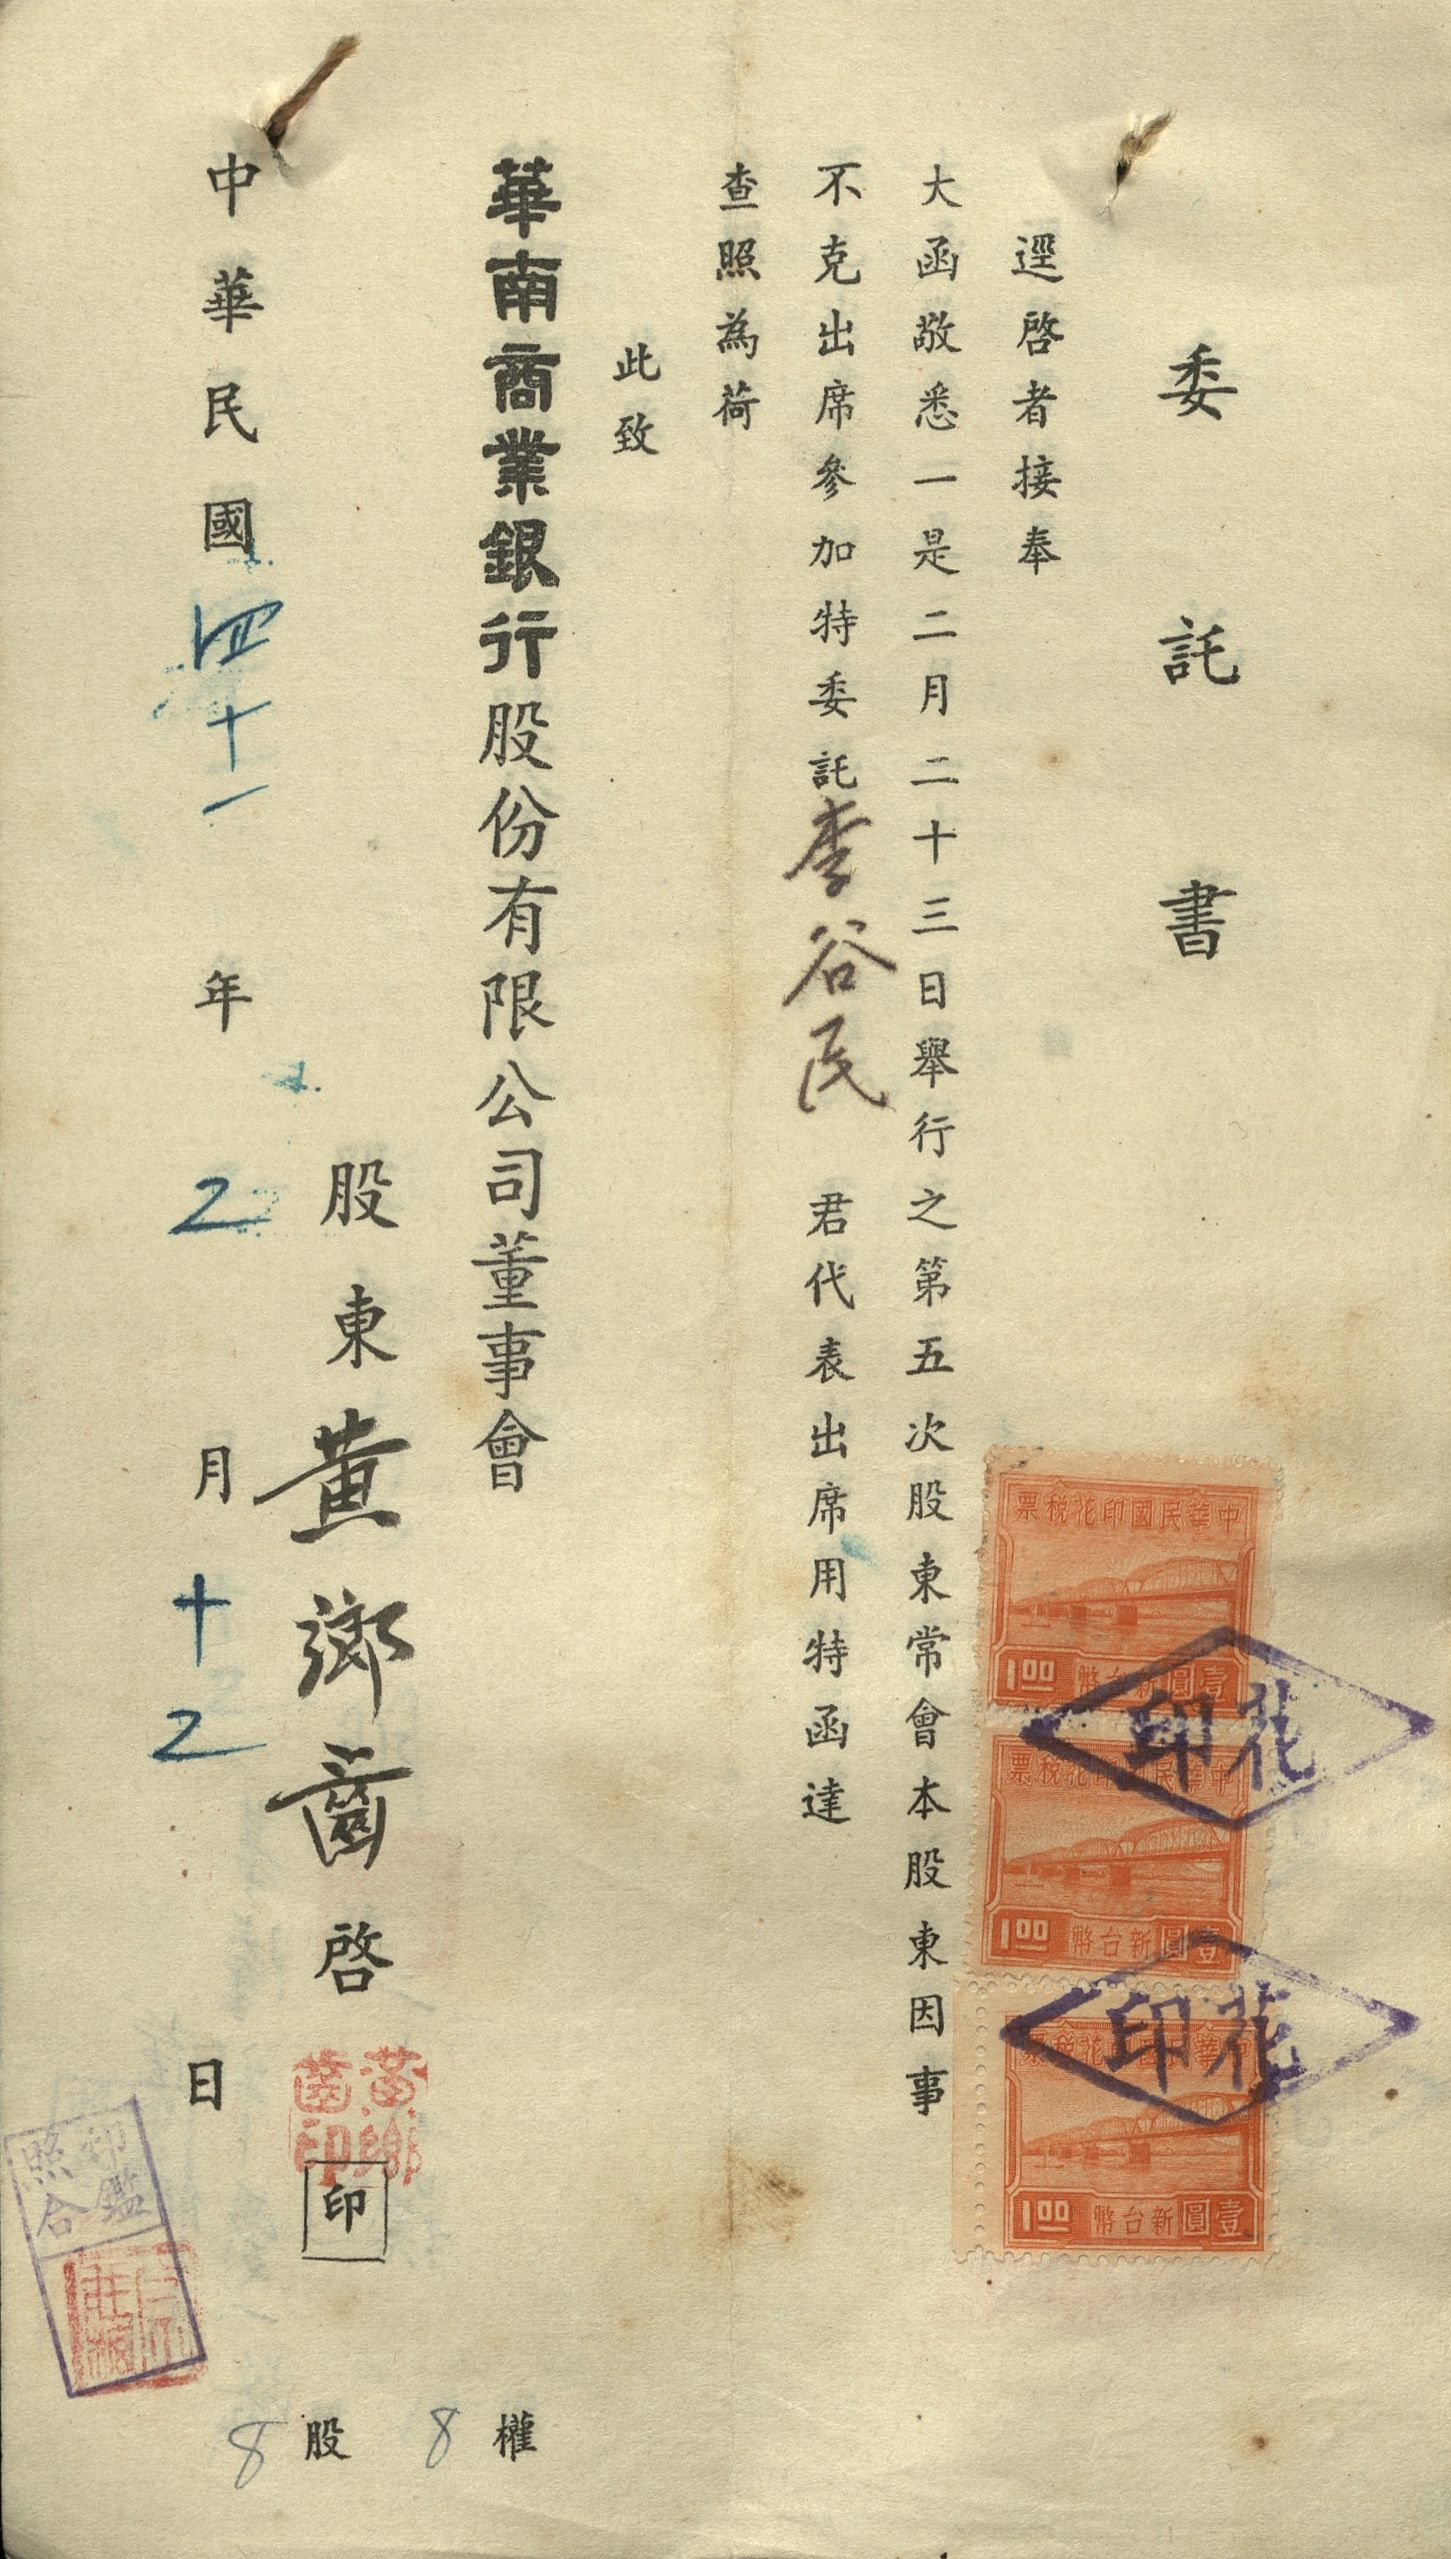 委託書
逕啓者接奉
大函敬悉一是二月二十三日舉行之第五次股東常會本股東因事
不克出席參加特委託李谷民 君代表出席用特函達
查照為荷
此致
華南商業銀行股份有限公司董事會
股東黃鄉啓
印
中華民國四十一年2月十2日
8權
8股
中華民國印花稅票
1.00 壹圓新台幣
中華民國印花稅票
1.00 壹圓新台幣
中華民國印花稅票
1.00 壹圓新台幣
花印
花印
印鑑
照合